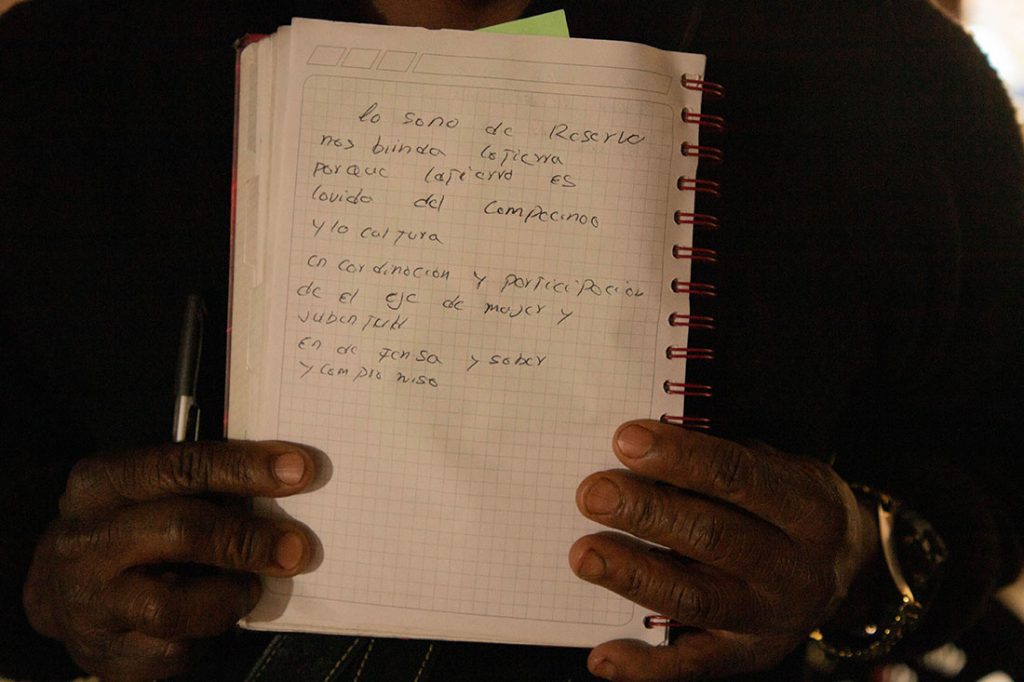 la sona de Reserva
nos brinda la Tierra
porque la Tierra es
la vida del Campecinoo
y la cultura
en cordinación y participación
de el eje de mujer y
jubentud
En defensa y saber
y compromiso